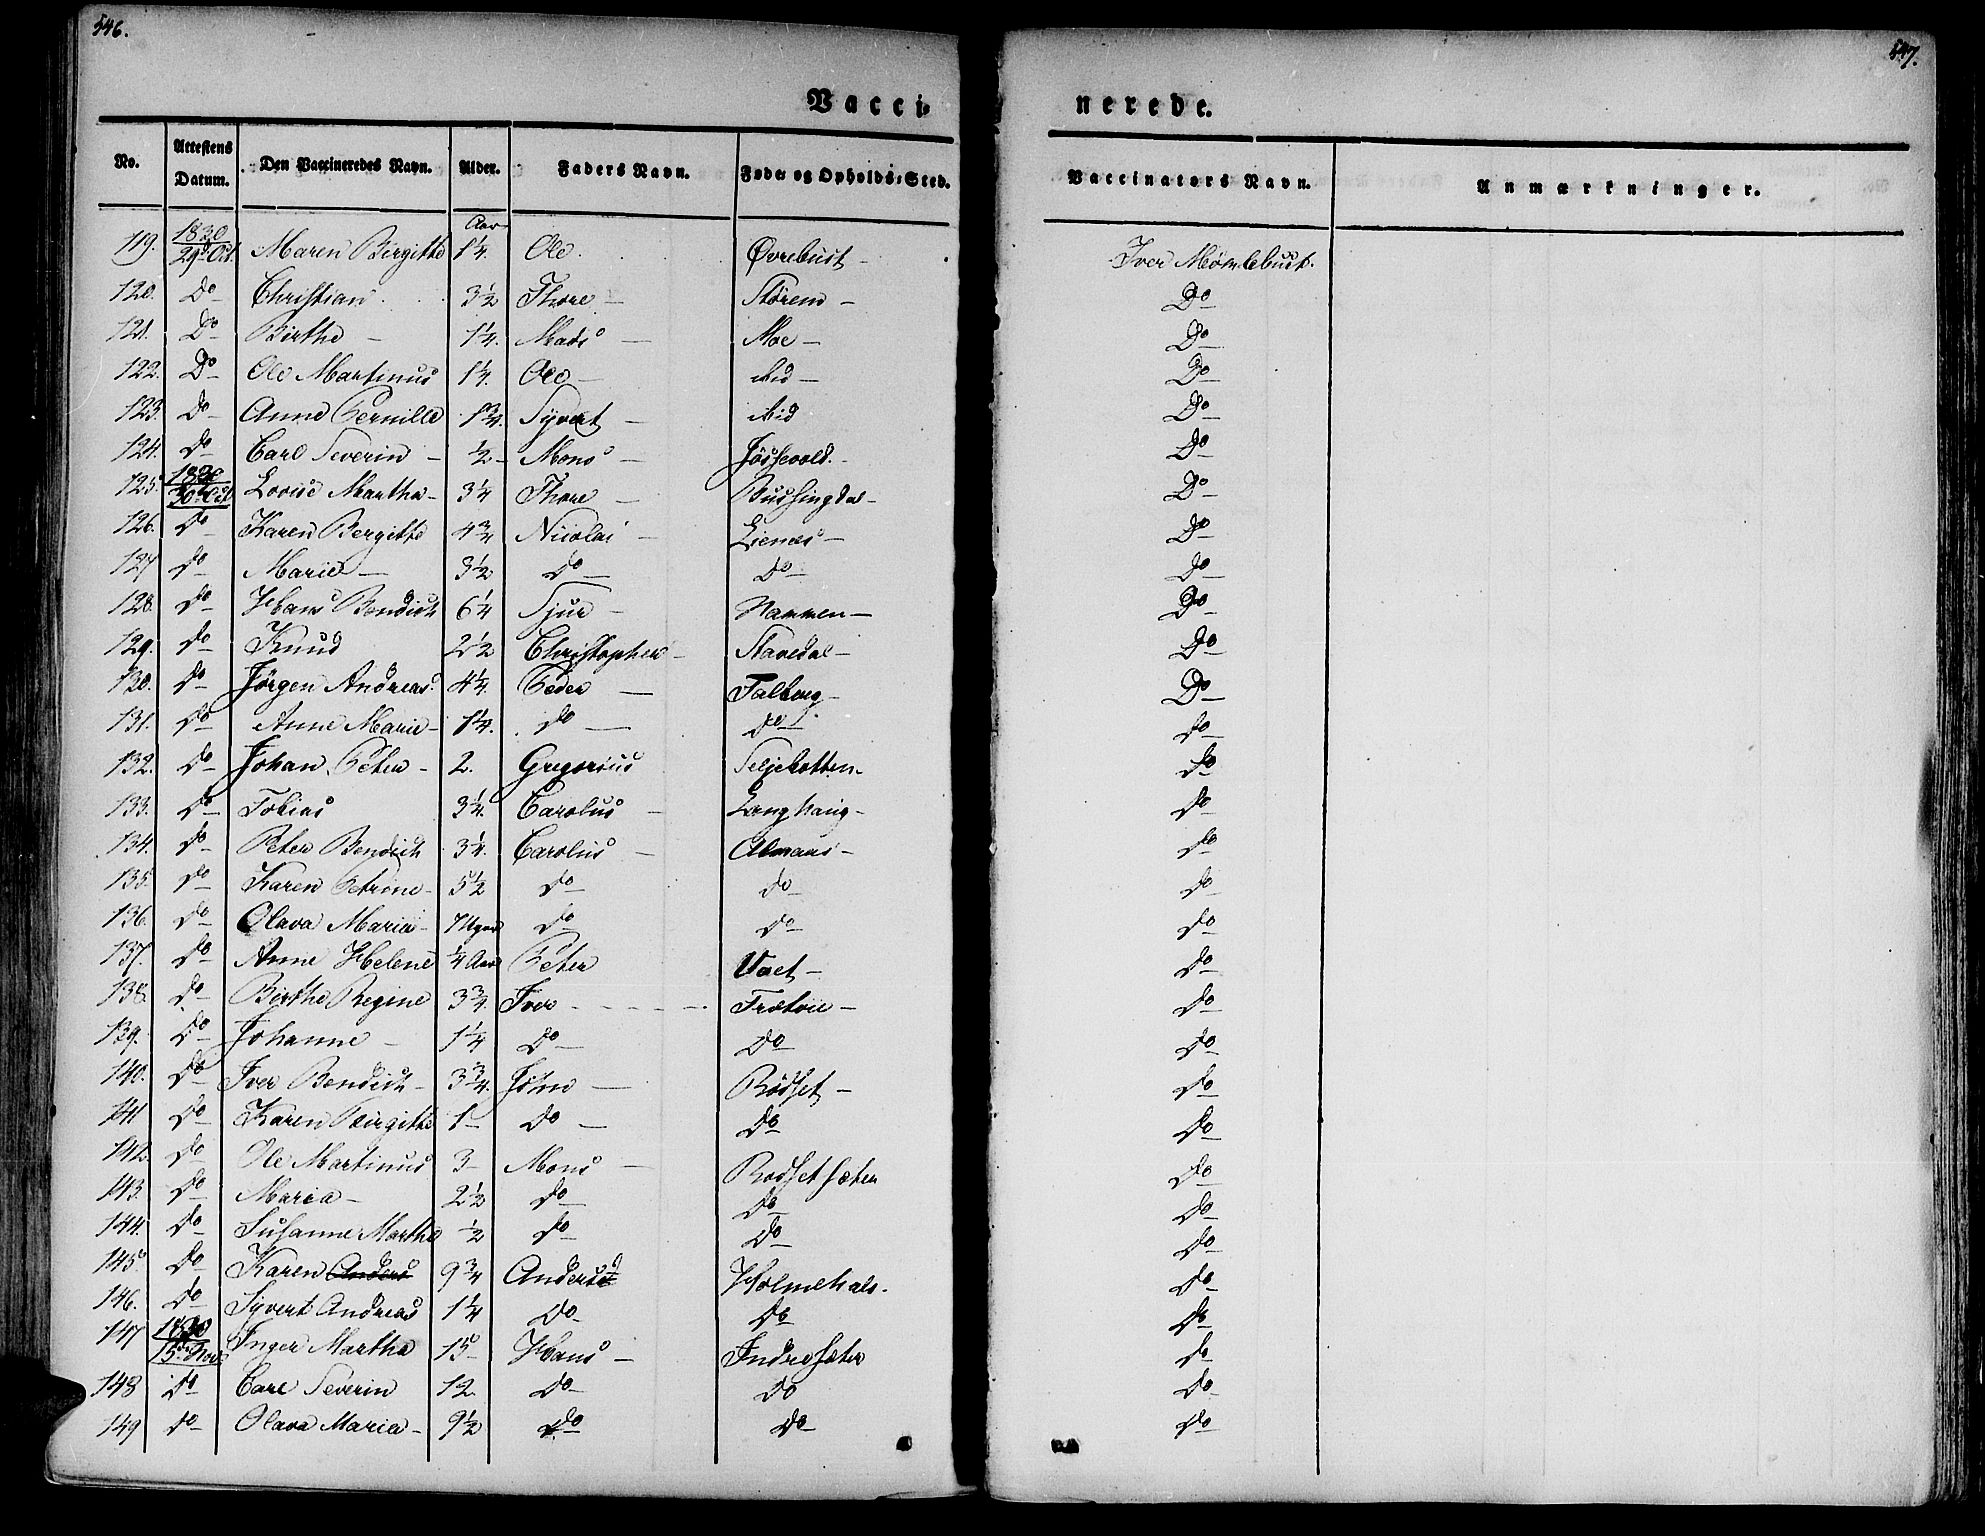 546.
547.
Vacci-
nerede.
No. Attestens Datum. Den Vaccineredes Navn. Alder. Faders Navn. Føde- og Opholds-Sted. Vaccinators Navn. Anmærkninger.
119. 1830 29de Oct. Maren Birgitte 1¼ Aar Ole. Øvrebust - Iver
120. Do Christian 3½ Thore - Støren - Do
121. Do Birthe - 1¼. Mads - Moe - Do
122. Do Ole Martinus 1¼. Ole - Aid - Do
123. Do Anne Pernille 1¾ Syvert - Aid Do
124. Do Carl Severin - ½ - Mons - Do
125. 1830 30te Oct Lovise Martha - 3¼ Thore - Bussingdal - Do
126. Do Karen Bergitte 4¾ Nicolai - Lienæs - Do
127 Do Marie - 3½ Do - Do - Do
128. Do Hans Bendich 6¼ Sjur - Hammen - Do
129. Do Knud 2½ Christopher - Stavedal - Do
130. Do Jørgen Andreas. 4¼. Peder - Falberg - Do
131. Do Anne Marie - 1¼. Do - Do Do
132. Do Johan Peter - 2. Gregorius Seljebotten - Do
133. Do Tobias 3¼. Carolus - Langhaug - Do
134. Do Peter Bendich 3¼. Carolus - Almaas - Do
135. Do Karen Petrine - 5½ Do Do Do
136. Do Olava Maria - 7 Uger Do Do Do
137. Do Anne Helene ¼ Aar Peter Vaet - Do
138. Do Birthe Regine 3¾. Iver - Frætvie - Do
139. Do Johanne - 1¼ Do Do Do
140. Do Iver Bendich - 3¾. John - Rødset - Do
141 Do Karen Birgitte 1 - Do - Do Do
142. Do Ole Martinus 3 - Mons - Rødsetsæter Do
143. Do Maria - 2½ Do Do Do
144. Do Susanne Marthe ½ Do Do Do
145. Do Karen Anders 9¾ Anders Holmehals. Do
146. Do Syvert Andreas 1¼ Do Do Do
147 1830 15de Nov. Inger Martha 15 - Hans - Indresæter Do
148 Do Carl Severin 12. Do Do Do
149 Do Olava Maria - 9½ Do Do Do